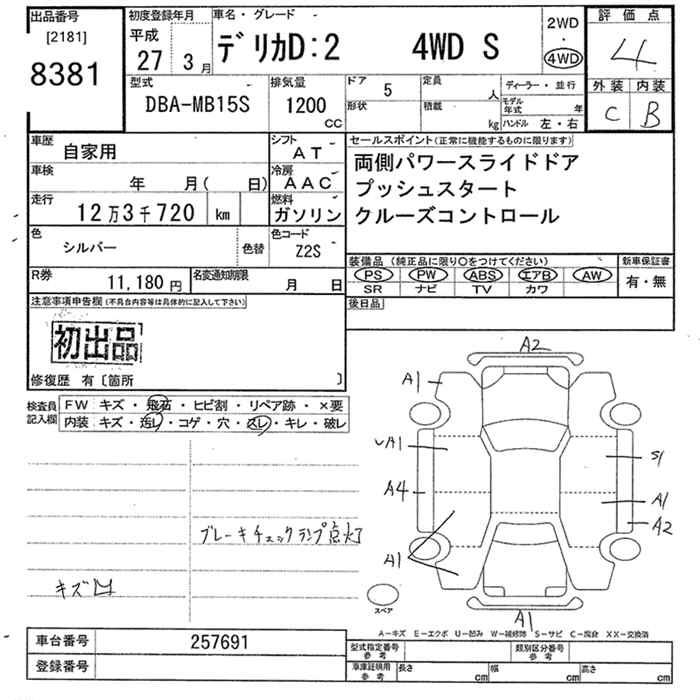 出品番号 初度登録年月 車名・グレード 2WD 評価点
[2181] 平成
8381 27年 3月 デリカD:2 4WD S 4WD 4
型式 排気量 ドア 5 定員 人 ディーラー・並行 外装 内装
DBA-MB15S 1200 CC 形状 積載 kg モデル年式 年 C B
ハンドル 左・右
車歴 自家用 シフト AT セールスポイント(正常に機能するものに限ります)
車検 年 月( 日) 冷房 AAC 両側パワースライドドア
走行 12万3千720 km 燃料 ガソリン プッシュスタート
クルーズコントロール
色 シルバー 色替 色コード Z2S
装備品 (純正品に限り〇をつけてください) 新車保証書
R券 11,180円 名変通知期限 月 日 PS PW ABS エアB AW 有・無
SR ナビ TV カワ
注意事項申告欄(不具合内容等は具体的に記入して下さい) 後日品
初出品
修復歴 有〔箇所 〕
検査員記入欄 FW キズ・飛石・ヒビ割・リペア跡・×要
内装 キズ・汚レ・コゲ・穴・スレ・キレ・破レ
A2
A1
A1
S1
A4
A1
A2
ブレーキチェックランプ点灯
A1
キズ凹
スペア
A1
A-キズ E-エクボ U-凹み W-補修跡 S-サビ C-腐食 XX-交換済
車台番号 257691 型式指定番号 参考 類別区分番号 参考
登録番号 車庫証明用 参考 長さ cm 幅 cm 高さ cm